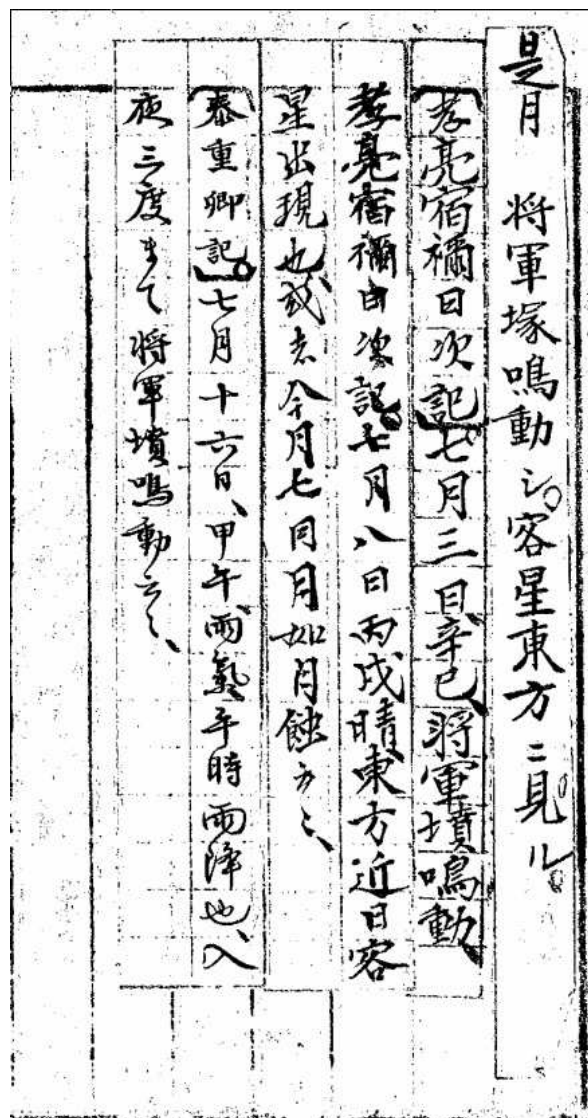 是月　将軍塚鳴動シ。客星東方ニ見ル。
〔孝亮宿禰日次記〕七月三日、辛巳、将軍墳鳴動、
孝亮宿禰日次記。七月八日丙戌晴、東方近日客
星出現也、或者今月七日月如月蝕云々、
〔泰重卿記〕。七月十六日、甲午、雨氣、午時雨降也、入
夜三度まて将軍墳鳴動云々、